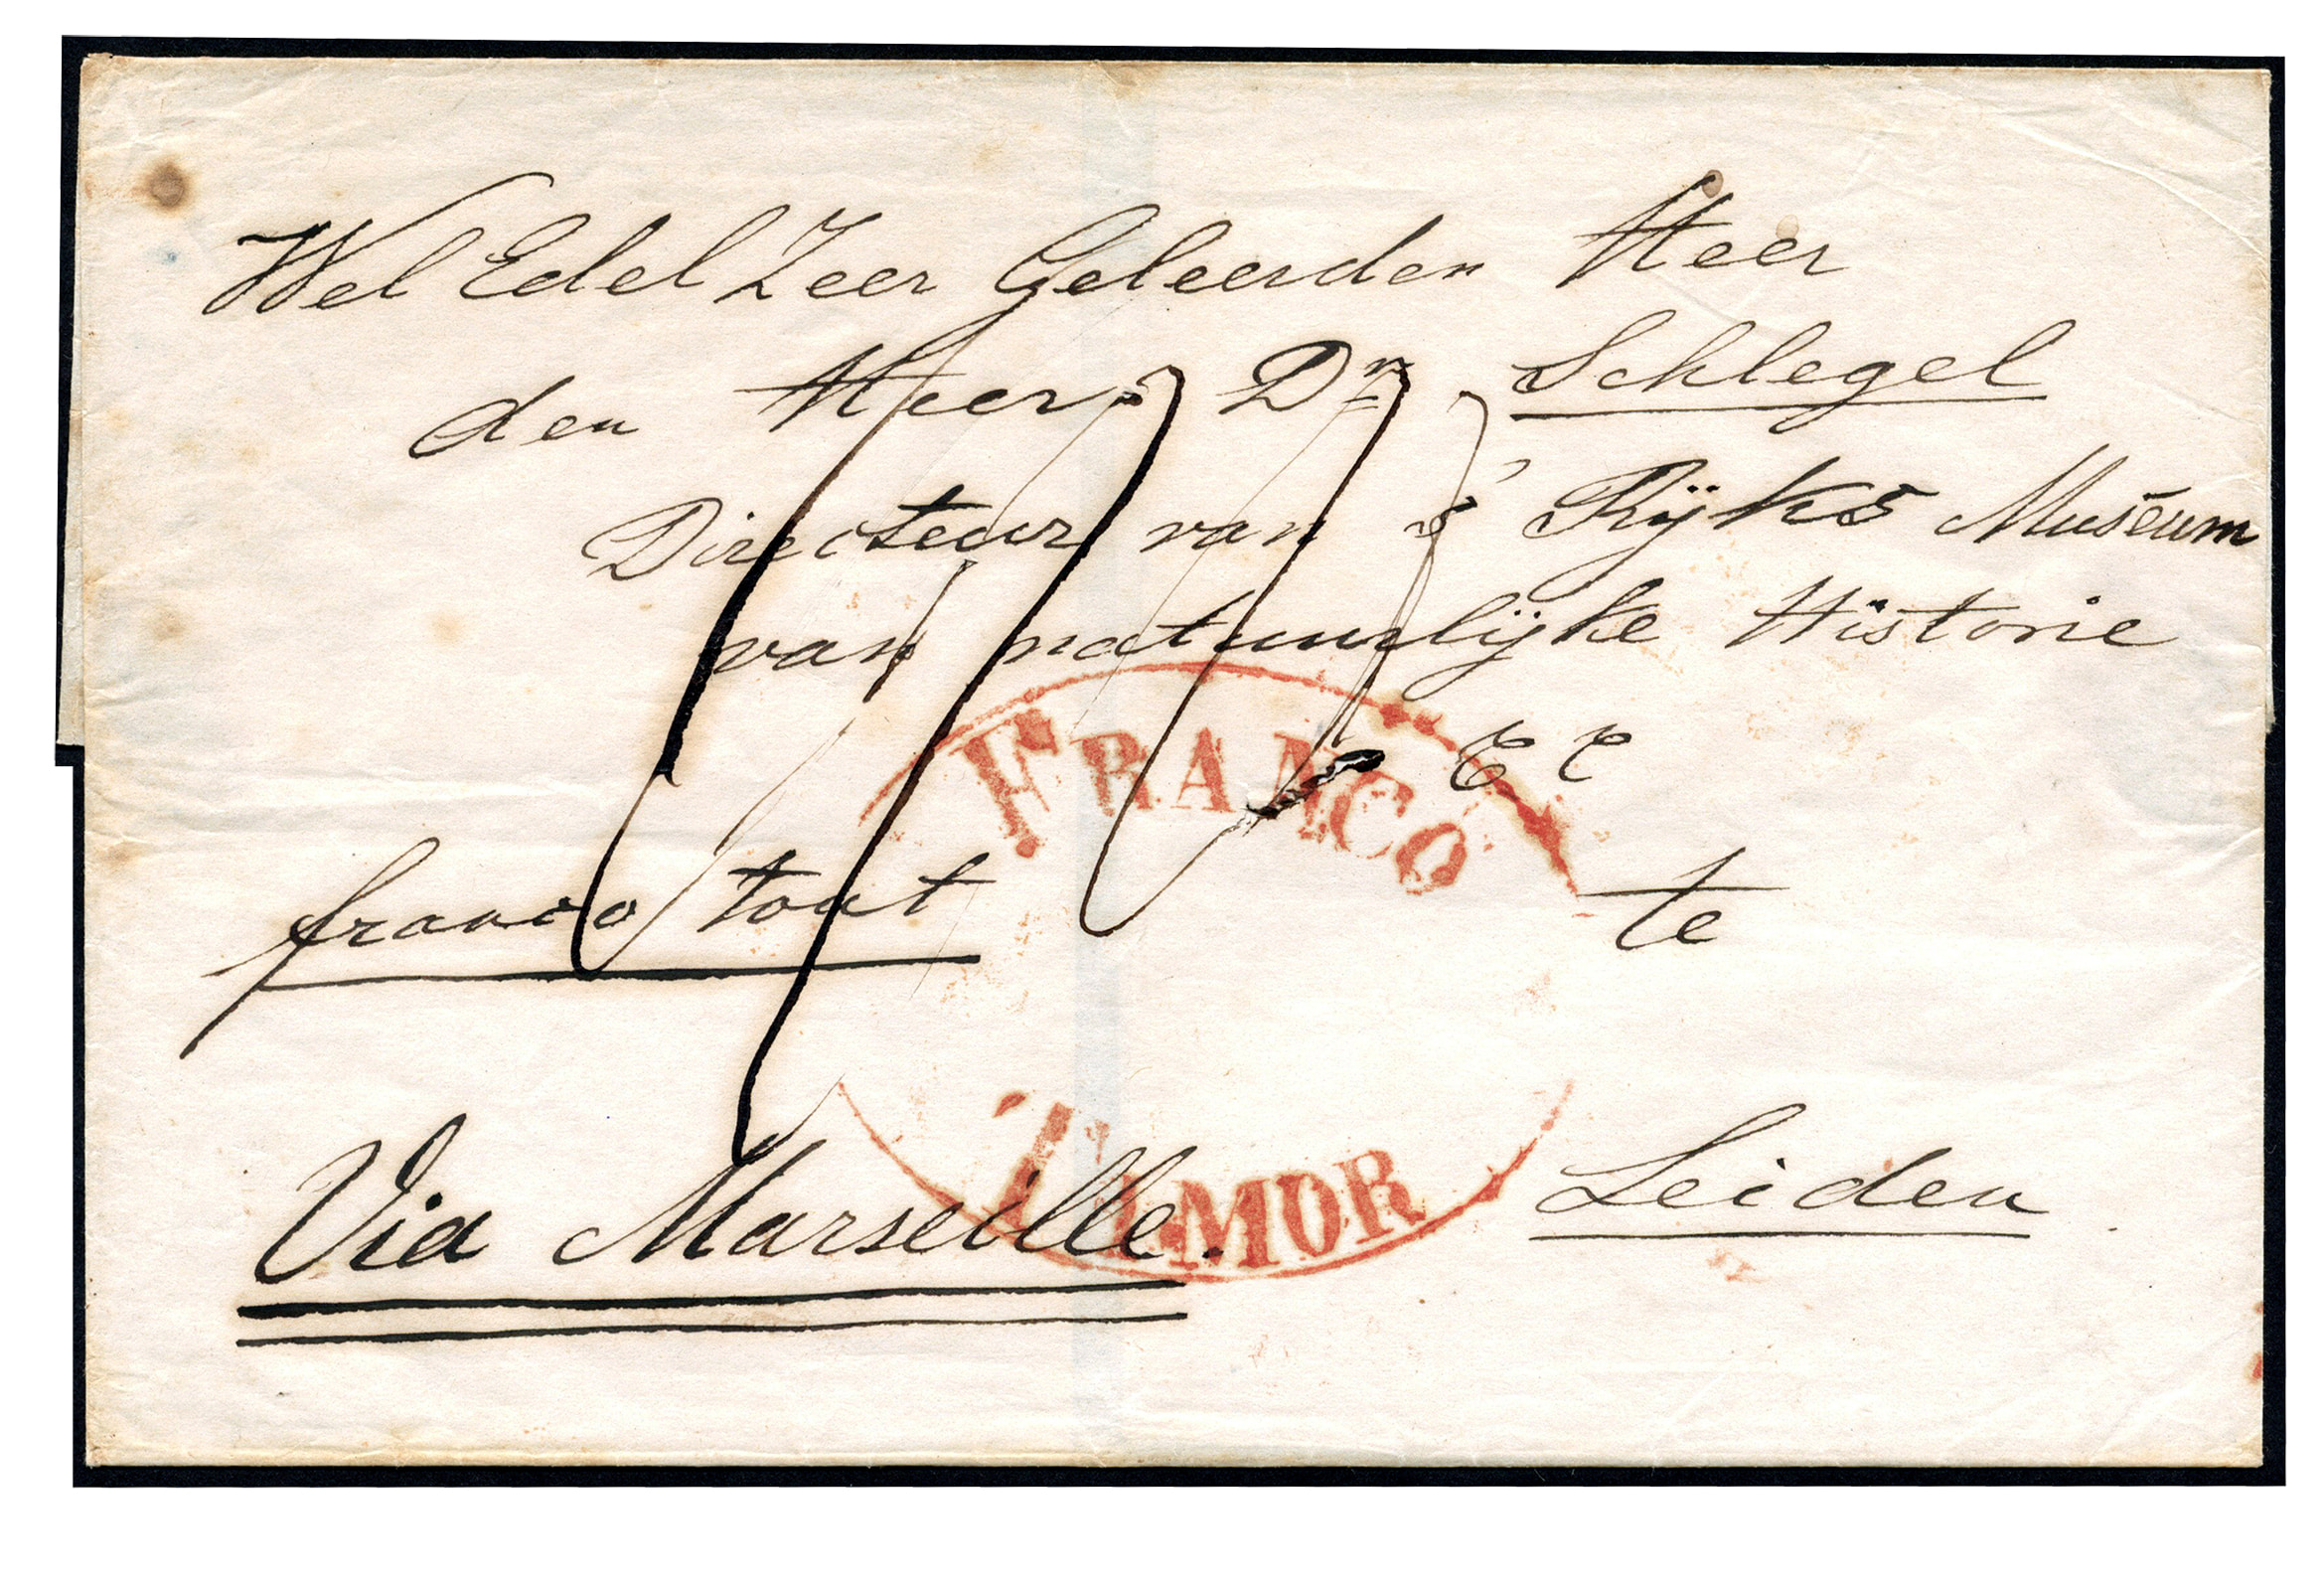 Wel Edel Zeer Geleerden Heer
den Heer Dr Schlegel
Directeur van 's Rijks Museum
van natuurlijke Historie
FRANCO
franco tout
te
TIMOR
Via Marseille.
Leiden